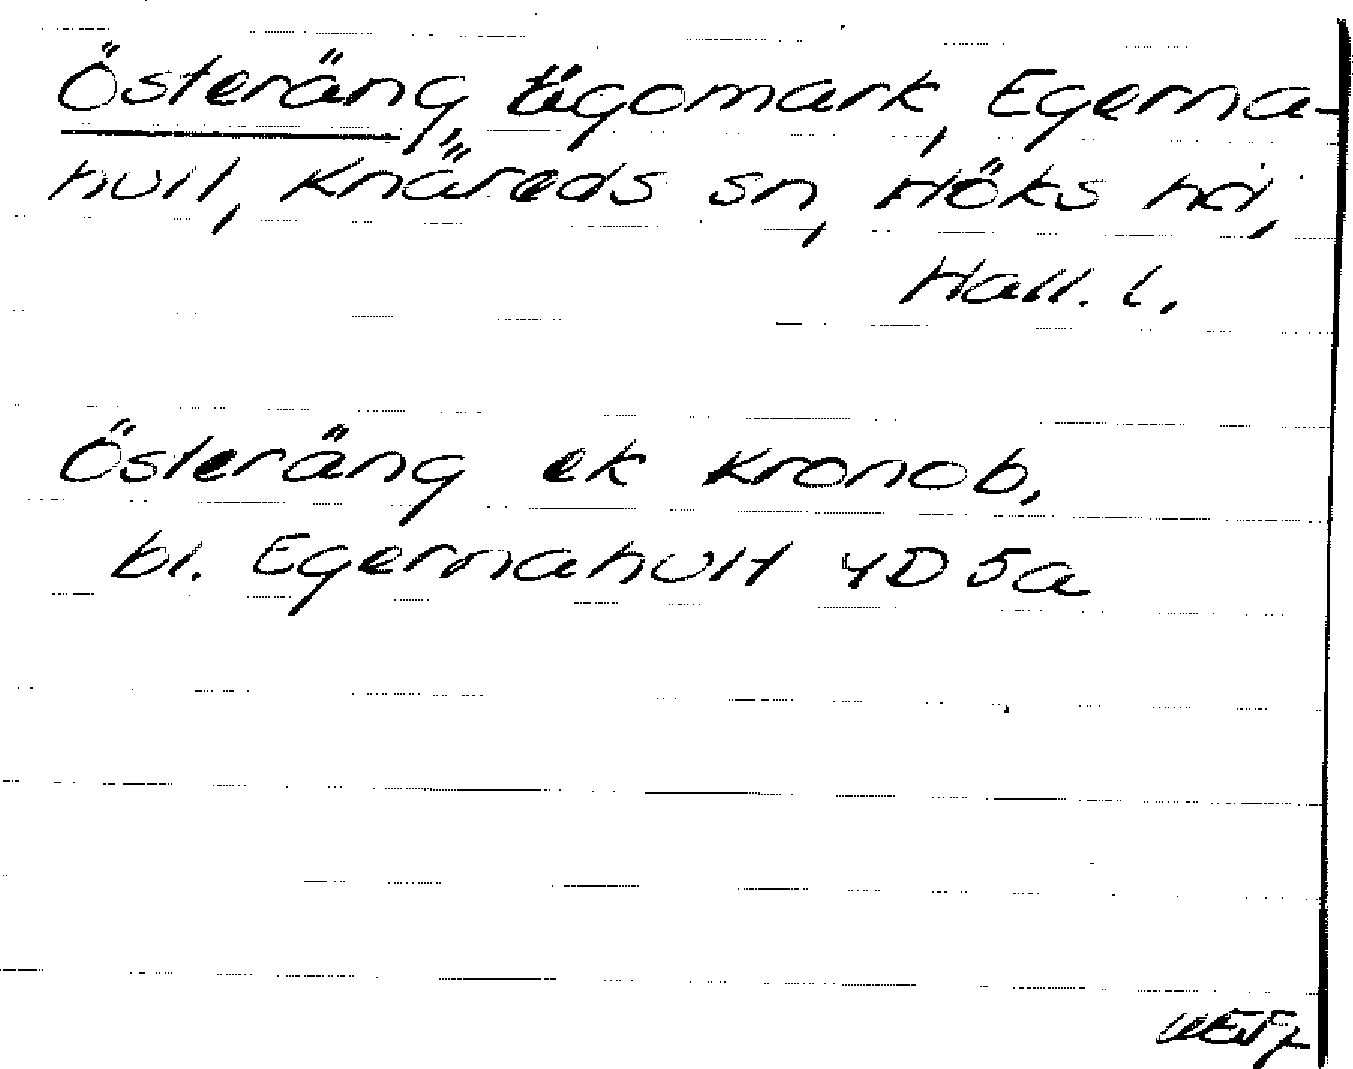 Österäng, tägomark, Egerna-
hult, Knäreds sn, Höks hd,
Hall. l.
Österäng ek Kronob,
bl. Egernahult 4D 5a